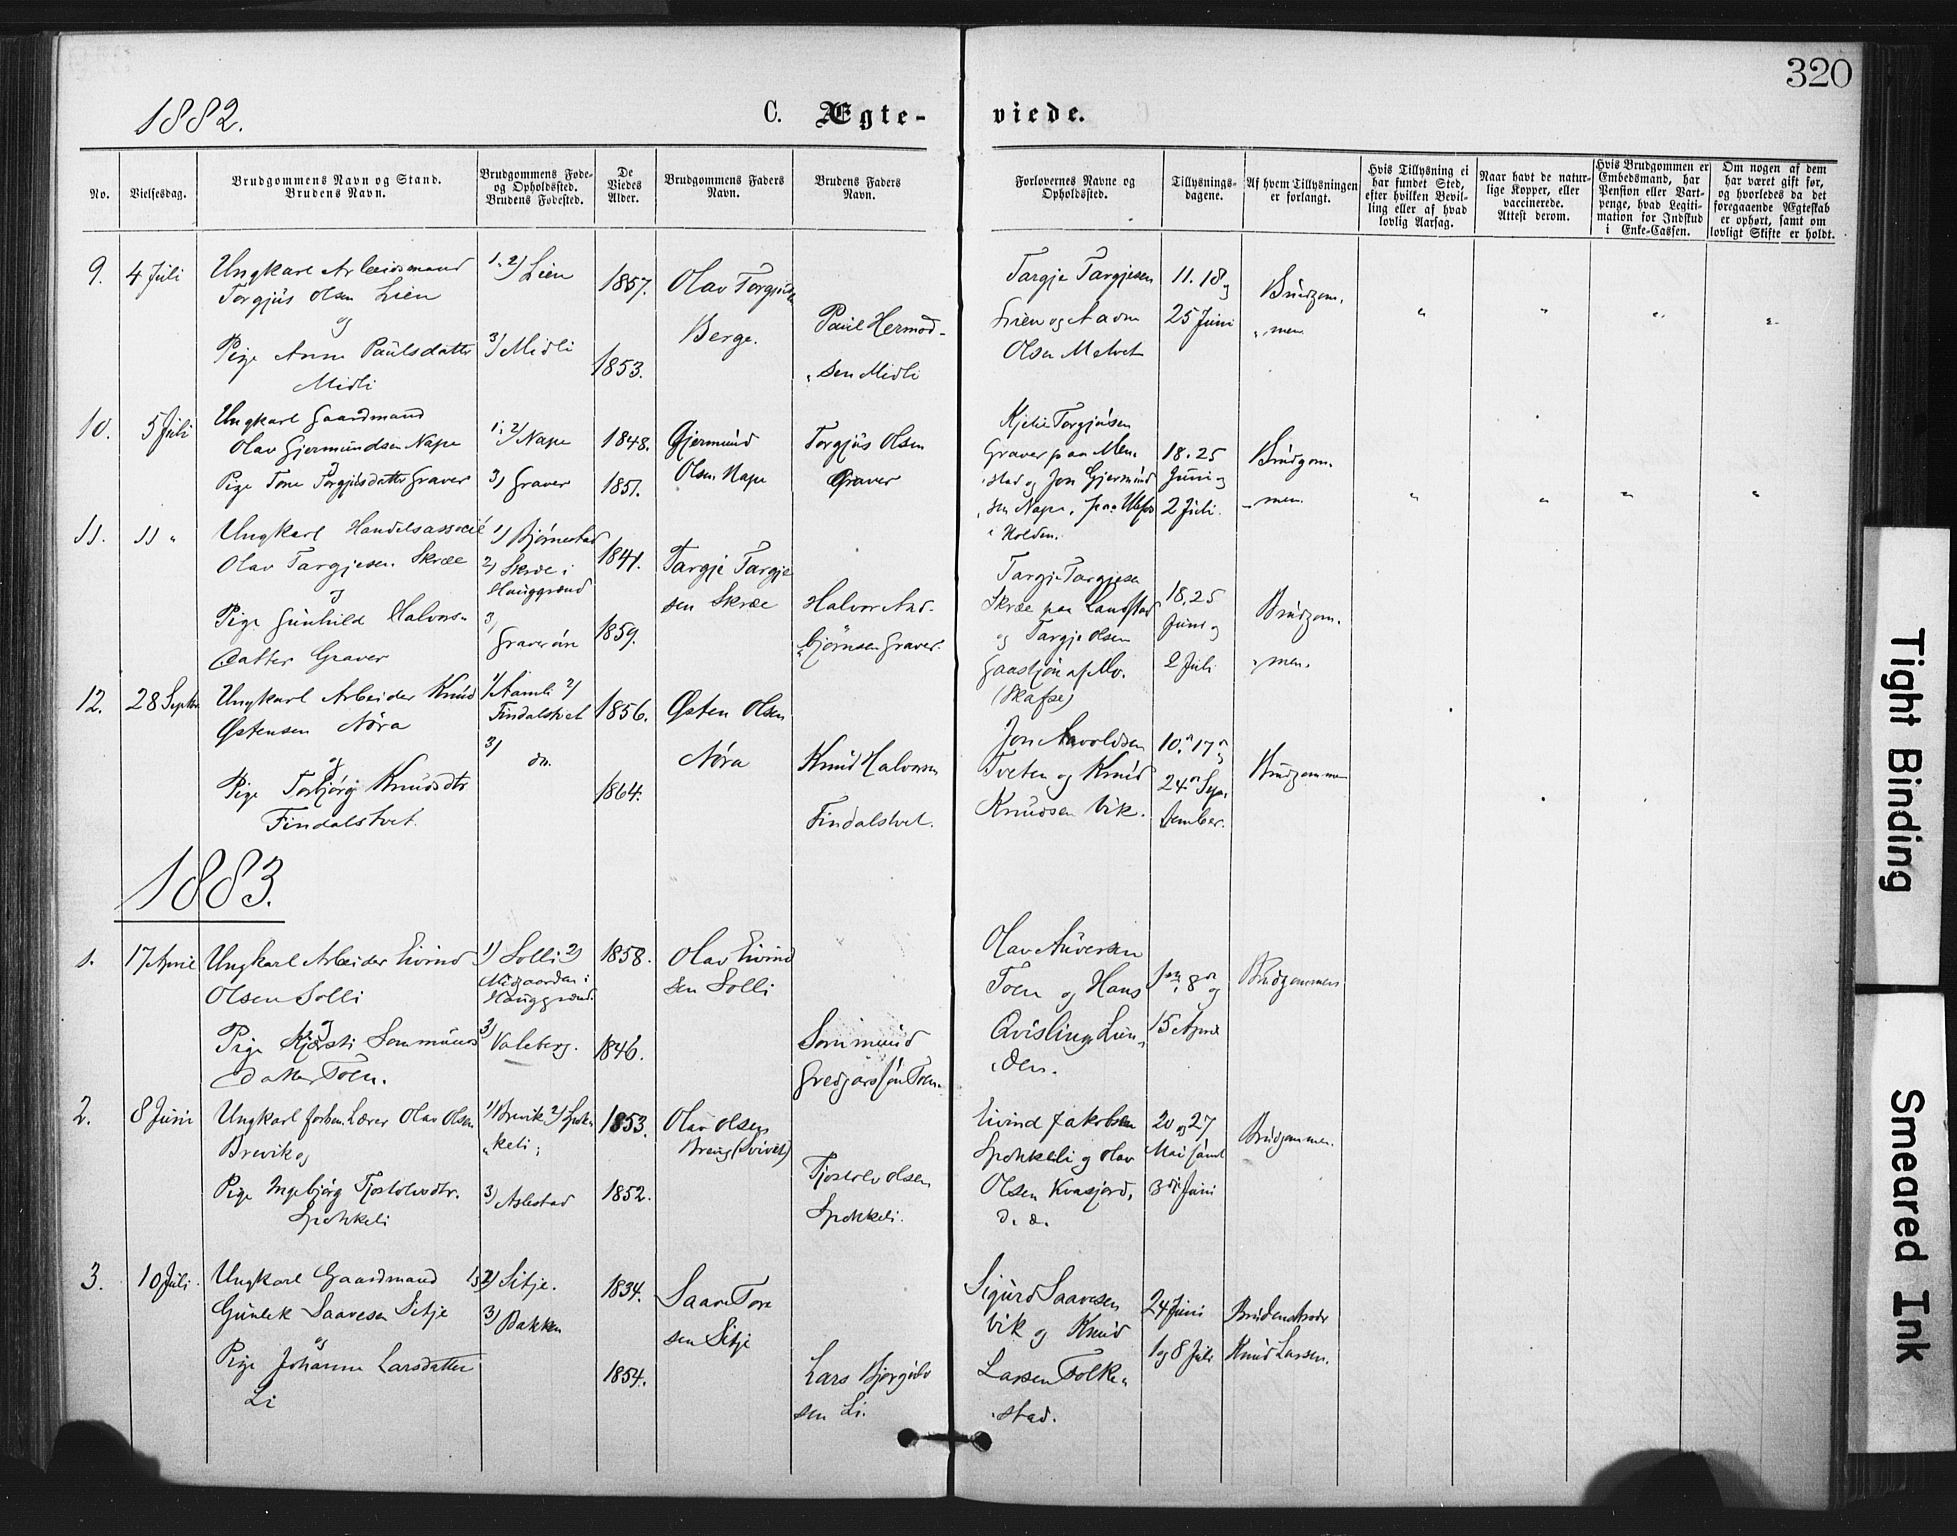 320
1882.
C. Ægte-
viede.
No.
Vielsesdag.
Brudgommens Navn og Stand.
Brudens Navn.
Brudgommens Føde-
og Opholdssted.
Brudens Fødested.
De
Viedes
Alder.
Brudgommens Faders
Navn.
Brudens Faders
Navn.
Forlovernes Navne og
Opholdssted.
Tillysnings-
dagene.
Af hvem Tillysningen
er forlangt.
Hvis Tillysning ei
har fundet Sted,
efter hvilken Bevil-
ling eller af hvad
lovlig Aarsag.
Naar havt de natur-
lige Kopper, eller
vaccinerede.
Attest derom.
Hvis Brudgommen er
Embedsmand, har
Pension eller Vart-
penge, hvad Legiti-
mation for Indskud
i Enke-Cassen.
Om nogen af dem
har været gift før,
og hvorledes da det
foregaaende Ægteskab
er ophørt, samt om
lovligt Skifte er holdt.
9.
4 Juli
Ungkarl Arbeidsmand
Torgjus Olsen Lien
og
Pige Anne Paulsdatter
Midli
1, 2) Lien
3) Midli
1857.
1853.
Olav Torgjus
Berge.
Paul Hermod-
sen Midli
Targje Targjesen
Lien og Aavn
Olsen
11. 18 og
25 Juni
Brudgom-
men
10.
5 Juli
Ungkarl Gaardmand
Olav Gjermundsen Nape
og
Pige Tone Torgjusdatter Graver
1, 2) Nape
3) Graver
1848.
1851.
Gjermund
Olsen Nape
Torgjus Olsen
Graver
Torgjusen
Graver paa Men-
stad og Jon Gjermund
sen Nape, paa Ulefos
Holden.
18. 25
Juni og
2 Juli.
Brudgom-
men.
11.
11 "
Ungkarl Handelsassocié
Olav Targjesen Skræe
og
Pige Gunhild Halvors-
datter Graver
1) Bjørnestad
2) Skræe i
Hauggrend
3)
Graverøre
1841.
1859.
Targje Targje
sen Skræe
Halvor And-
bjørnsen Graver.
Targje Targjesen
Skræe paa Landstad
og Targje Olsen
Gaastjøn af Mo.
(Skafse)
18. 25
Juni og
2 Juli
Brudgom-
men.
12.
28 Septbr
Ungkarl Arbeider Knud
Østensen Nøra
og
Pige Torbjørg Knudsdtr
Findalstvet.
1) Aamli 2)
Findalstvet
3)
do.
1856.
1864.
Østen Olsen
Nøra
Knud Halvorsen
Findalstvet.
Jon Aavoldsen
Tveten og Knud
Knudsen Vik.
10. 17 og
24 Sep-
tember.
Brudgommen
1883.
1.
17 April
Ungkarl Arbeider Eivind
Olsen Solli
og
Pige Kjersti Sommunds
datter Toen.
1) Solli 2)
Nigaarden i
Hauggrend.
3) Valeberg.
1858.
1846.
Olav Eivind
sen Solli
Sommund
Gredgarssøn Toen.
Olav
Toen og Hans
Qvisling Lun-
den.
1, 8 og
15 April
Brudgommens
2.
8 Juni
Ungkarl Lærer Olav Olsen
Brevik og
Pige Ingebjørg Tjostolvsdtr.
Spokkeli
1) Brevik 2) Spok-
keli;
3) Aslestad
1853.
1852.
Olav Olsen
Tjostolv Olsen
Spokkeli.
Eivind Jakobsen
Spokkeli og Olav
Olsen Kvasjord,
20 og 27
Mai samt
3 Juni
Brudgommen.
3.
10 Juli.
Ungkarl Gaardmand
Gunlek Saavesen Sitje
og
Pige Johanne Larsdatter
Li
1, 2) Sitje.
3) Bakken
1834.
1854.
Saave Tore
sen Sitje
Lars Bjørgulv
sen Li.
Sigurd Saavesen
Vik og Knud
Larsen Folke-
stad.
24 Juni
1 og 8 Juli
Brudens
Knud Larsen.
Tight Binding
Smeared Ink